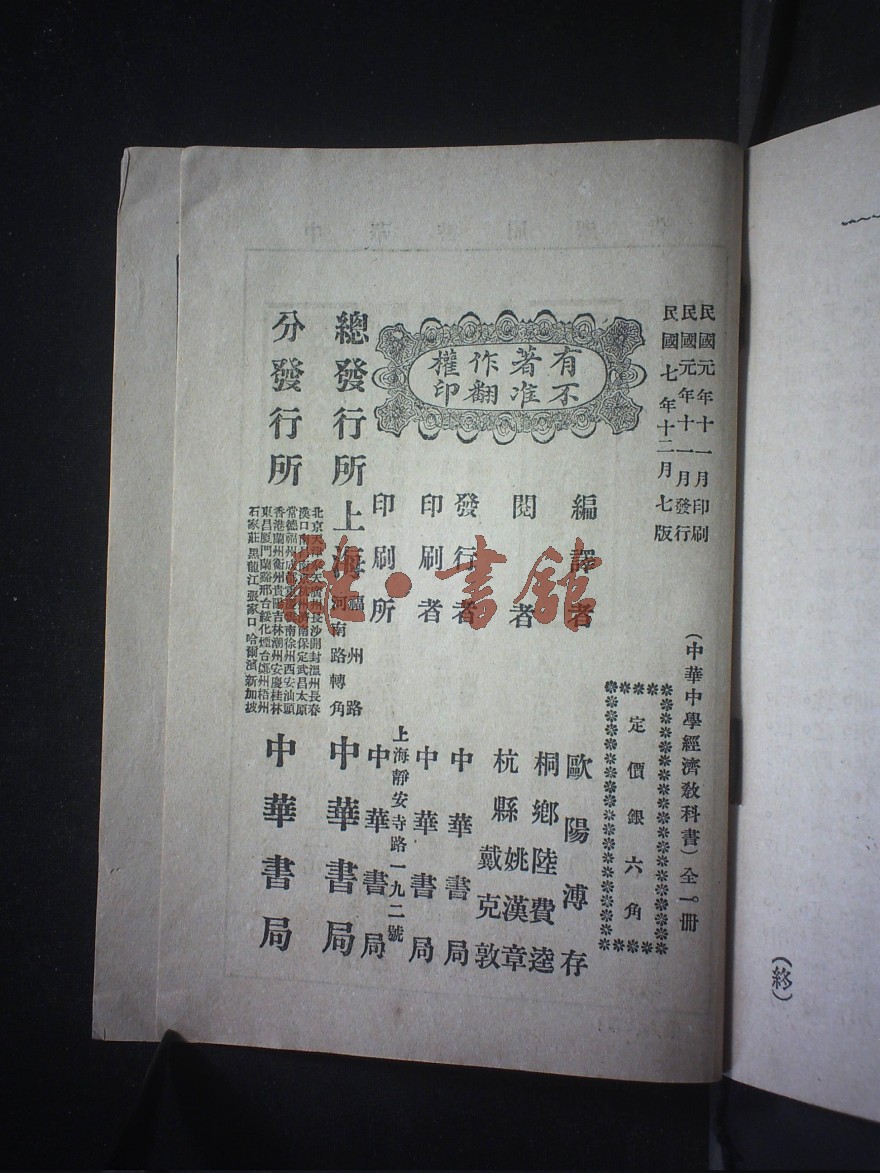 民國元年十一月印刷
民國元年十一月發行
民國七年十二月七版
(中華中學經濟教科書)全一冊
定價銀六角
有著作權
不准翻印
編譯者 歐陽溥存
閱者 桐鄉陸費逵
杭縣姚漢章
戴克敦
發行者 中華書局
印刷者 中華書局
印刷所 上海靜安寺路一九二號 中華書局
總發行所 上海 福州路 河南路轉角 中華書局
分發行所 中華書局
北京天津 廣州長沙開封溫州長春
漢口南 南保定武昌太原
常德福州成 南徐州西安汕頭
香港蘭州衡州貴陽吉林潮州安慶桂林
東昌厦門蘭谿邢台綏化煙台鄭州梧州
石家莊黑龍江張家口哈爾濱新加坡
(終)
雒·書館